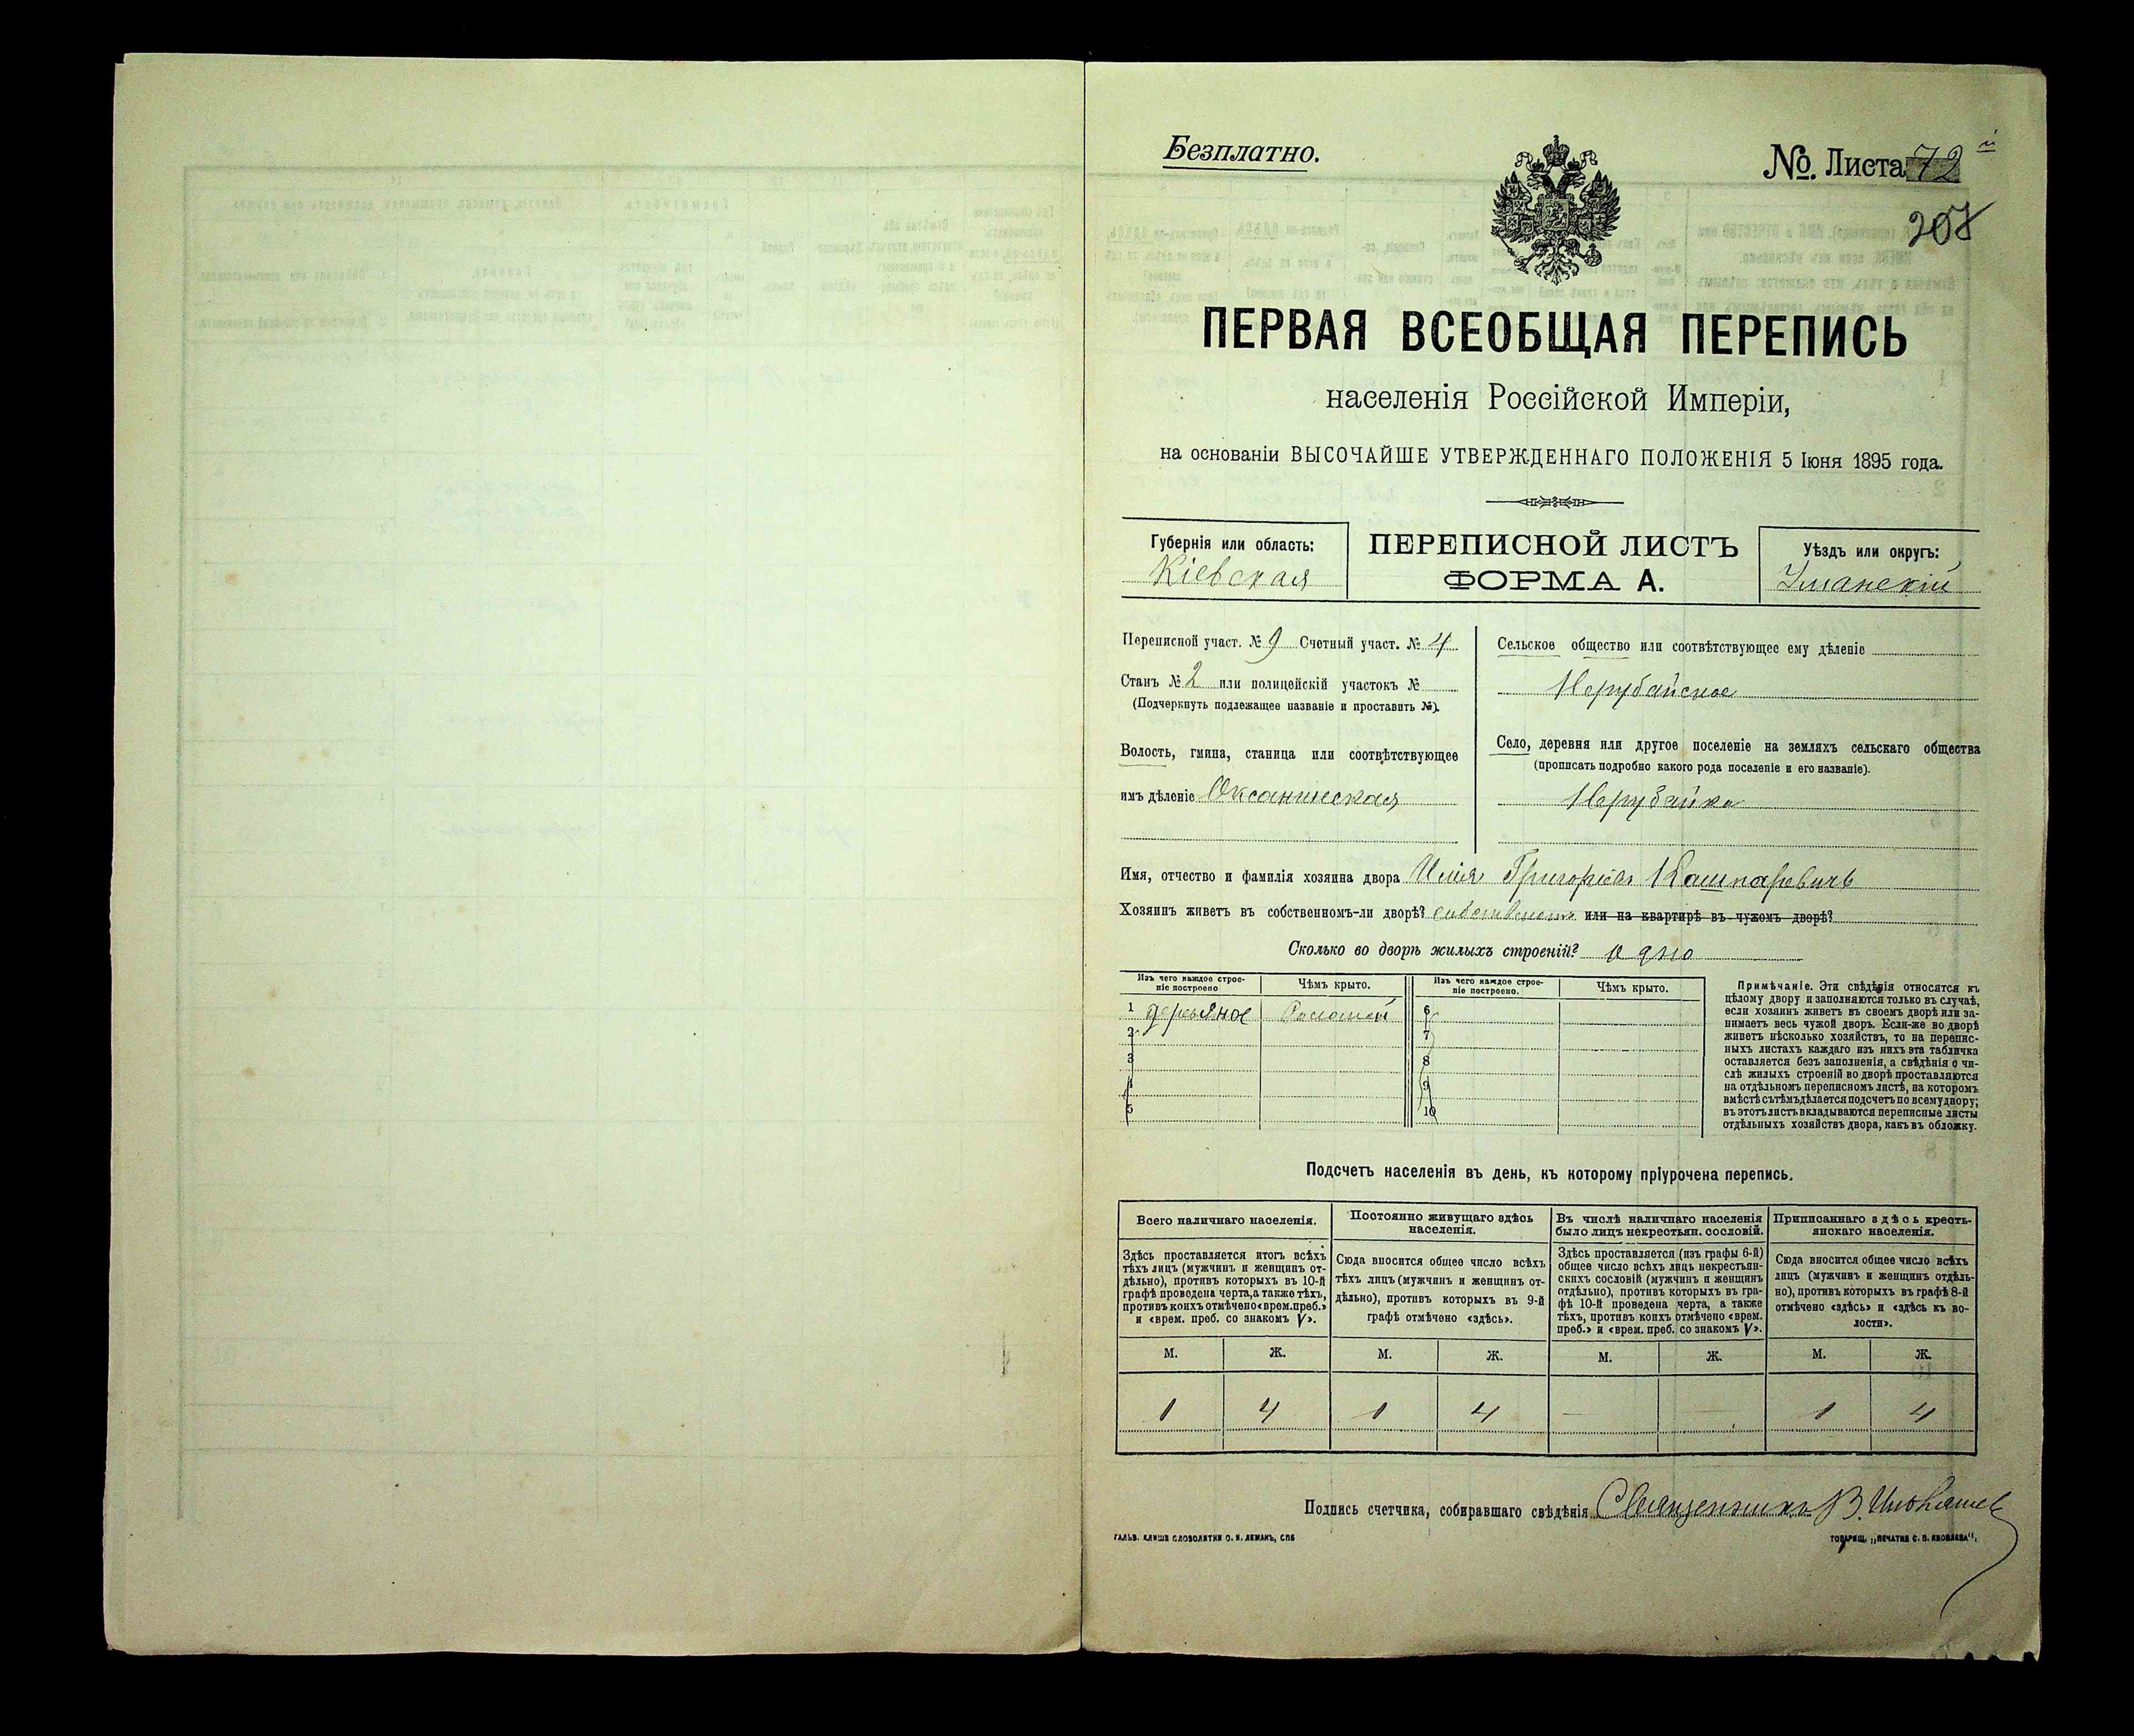 Безплатно.
№. Листа 72 й
207
ПЕРВАЯ ВСЕОБЩАЯ ПЕРЕПИСЬ
населенія Россійской Имперіи,
на основаніи ВЫСОЧАЙШЕ УТВЕРЖДЕННАГО ПОЛОЖЕНІЯ 5 Іюня 1895 года.
Губернія или область:
Кіевская
ПЕРЕПИСНОЙ ЛИСТЪ
ФОРМА А.
Уѣздъ или округъ:
Уманскій
Переписной участ. № 9 Счетный участ. № 4
Станъ № 2 или полицейскій участокъ №
(Подчеркнуть подлежащее названіе и проставить №).
Волость, гмина, станица или соотвѣтствующее
имъ дѣленіе Оксанинская
Сельское общество или соотвѣтствующее ему дѣленіе
Нерубайское
Село, деревня или другое поселеніе на земляхъ сельскаго общества
(прописать подробно какого рода поселеніе и его названіе).
Нерубайка
Имя, отчество и фамилія хозяина двора Илія Григоріев Кашпаревичъ
Хозяинъ живетъ въ собственномъ-ли дворѣ? собственномъ или на квартирѣ въ чужомъ дворѣ?
Сколько во дворѣ жилыхъ строеній? одно
Изъ чего каждое строе-
ніе построено
Чѣмъ крыто.
Изъ чего каждое строе-
ніе построено.
Чѣмъ крыто.
1 деревяное Соломой 6
2 7
3 8
4 9
5 10
Примѣчаніе. Эти свѣдѣнія относятся къ
цѣлому двору и заполняются только въ случаѣ,
если хозяинъ живетъ въ своемъ дворѣ или за-
нимаетъ весь чужой дворъ. Если-же во дворѣ
живетъ нѣсколько хозяйствъ, то на перепис-
ныхъ листахъ каждаго изъ нихъ эта табличка
оставляется безъ заполненія, а свѣдѣнія о чи-
слѣ жилыхъ строеній во дворѣ проставляются
на отдѣльномъ переписномъ листѣ, на которомъ
вмѣстѣ съ тѣмъ дѣлается подсчетъ по всему двору;
въ этотъ листъ вкладываются переписные листы
отдѣльныхъ хозяйствъ двора, какъ въ обложку.
Подсчетъ населенія въ день, къ которому пріурочена перепись.
Всего наличнаго населенія.
Здѣсь проставляется итогъ всѣхъ
тѣхъ лицъ (мужчинъ и женщинъ от-
дѣльно), противъ которыхъ въ 10-й
графѣ проведена черта, а также тѣхъ,
противъ коихъ отмѣчено «врем. преб.»
и «врем. преб. со знакомъ V».
Постоянно живущаго здѣсь
населенія.
Сюда вносится общее число всѣхъ
тѣхъ лицъ (мужчинъ и женщинъ от-
дѣльно), противъ которыхъ въ 9-й
графѣ отмѣчено «здѣсь».
Въ числѣ наличнаго населенія
было лицъ некрестьян. сословій.
Здѣсь проставляется (изъ графы 6-й)
общее число всѣхъ лицъ некрестьян-
скихъ сословій (мужчинъ и женщинъ
отдѣльно), противъ которыхъ въ гра-
фѣ 10-й проведена черта, а также
тѣхъ, противъ коихъ отмѣчено «врем.
преб.» и «врем. преб. со знакомъ V».
Приписаннаго здѣсь кресть-
янскаго населенія.
Сюда вносится общее число всѣхъ
лицъ (мужчинъ и женщинъ отдѣль-
но), противъ которыхъ въ графѣ 8-й
отмѣчено «здѣсь» и «здѣсь къ во-
лости».
М. Ж. М. Ж. М. Ж. М. Ж.
1 4 1 4 — — 1 4
Подпись счетчика, собиравшаго свѣдѣнія Священникъ В.
ГАЛЬВ. КЛИШЕ СЛОВОЛИТНИ О. И. ЛЕМАНЪ, СПБ
ТОВАРИЩ. „ПЕЧАТНЯ С. П. ЯКОВЛЕВА“.